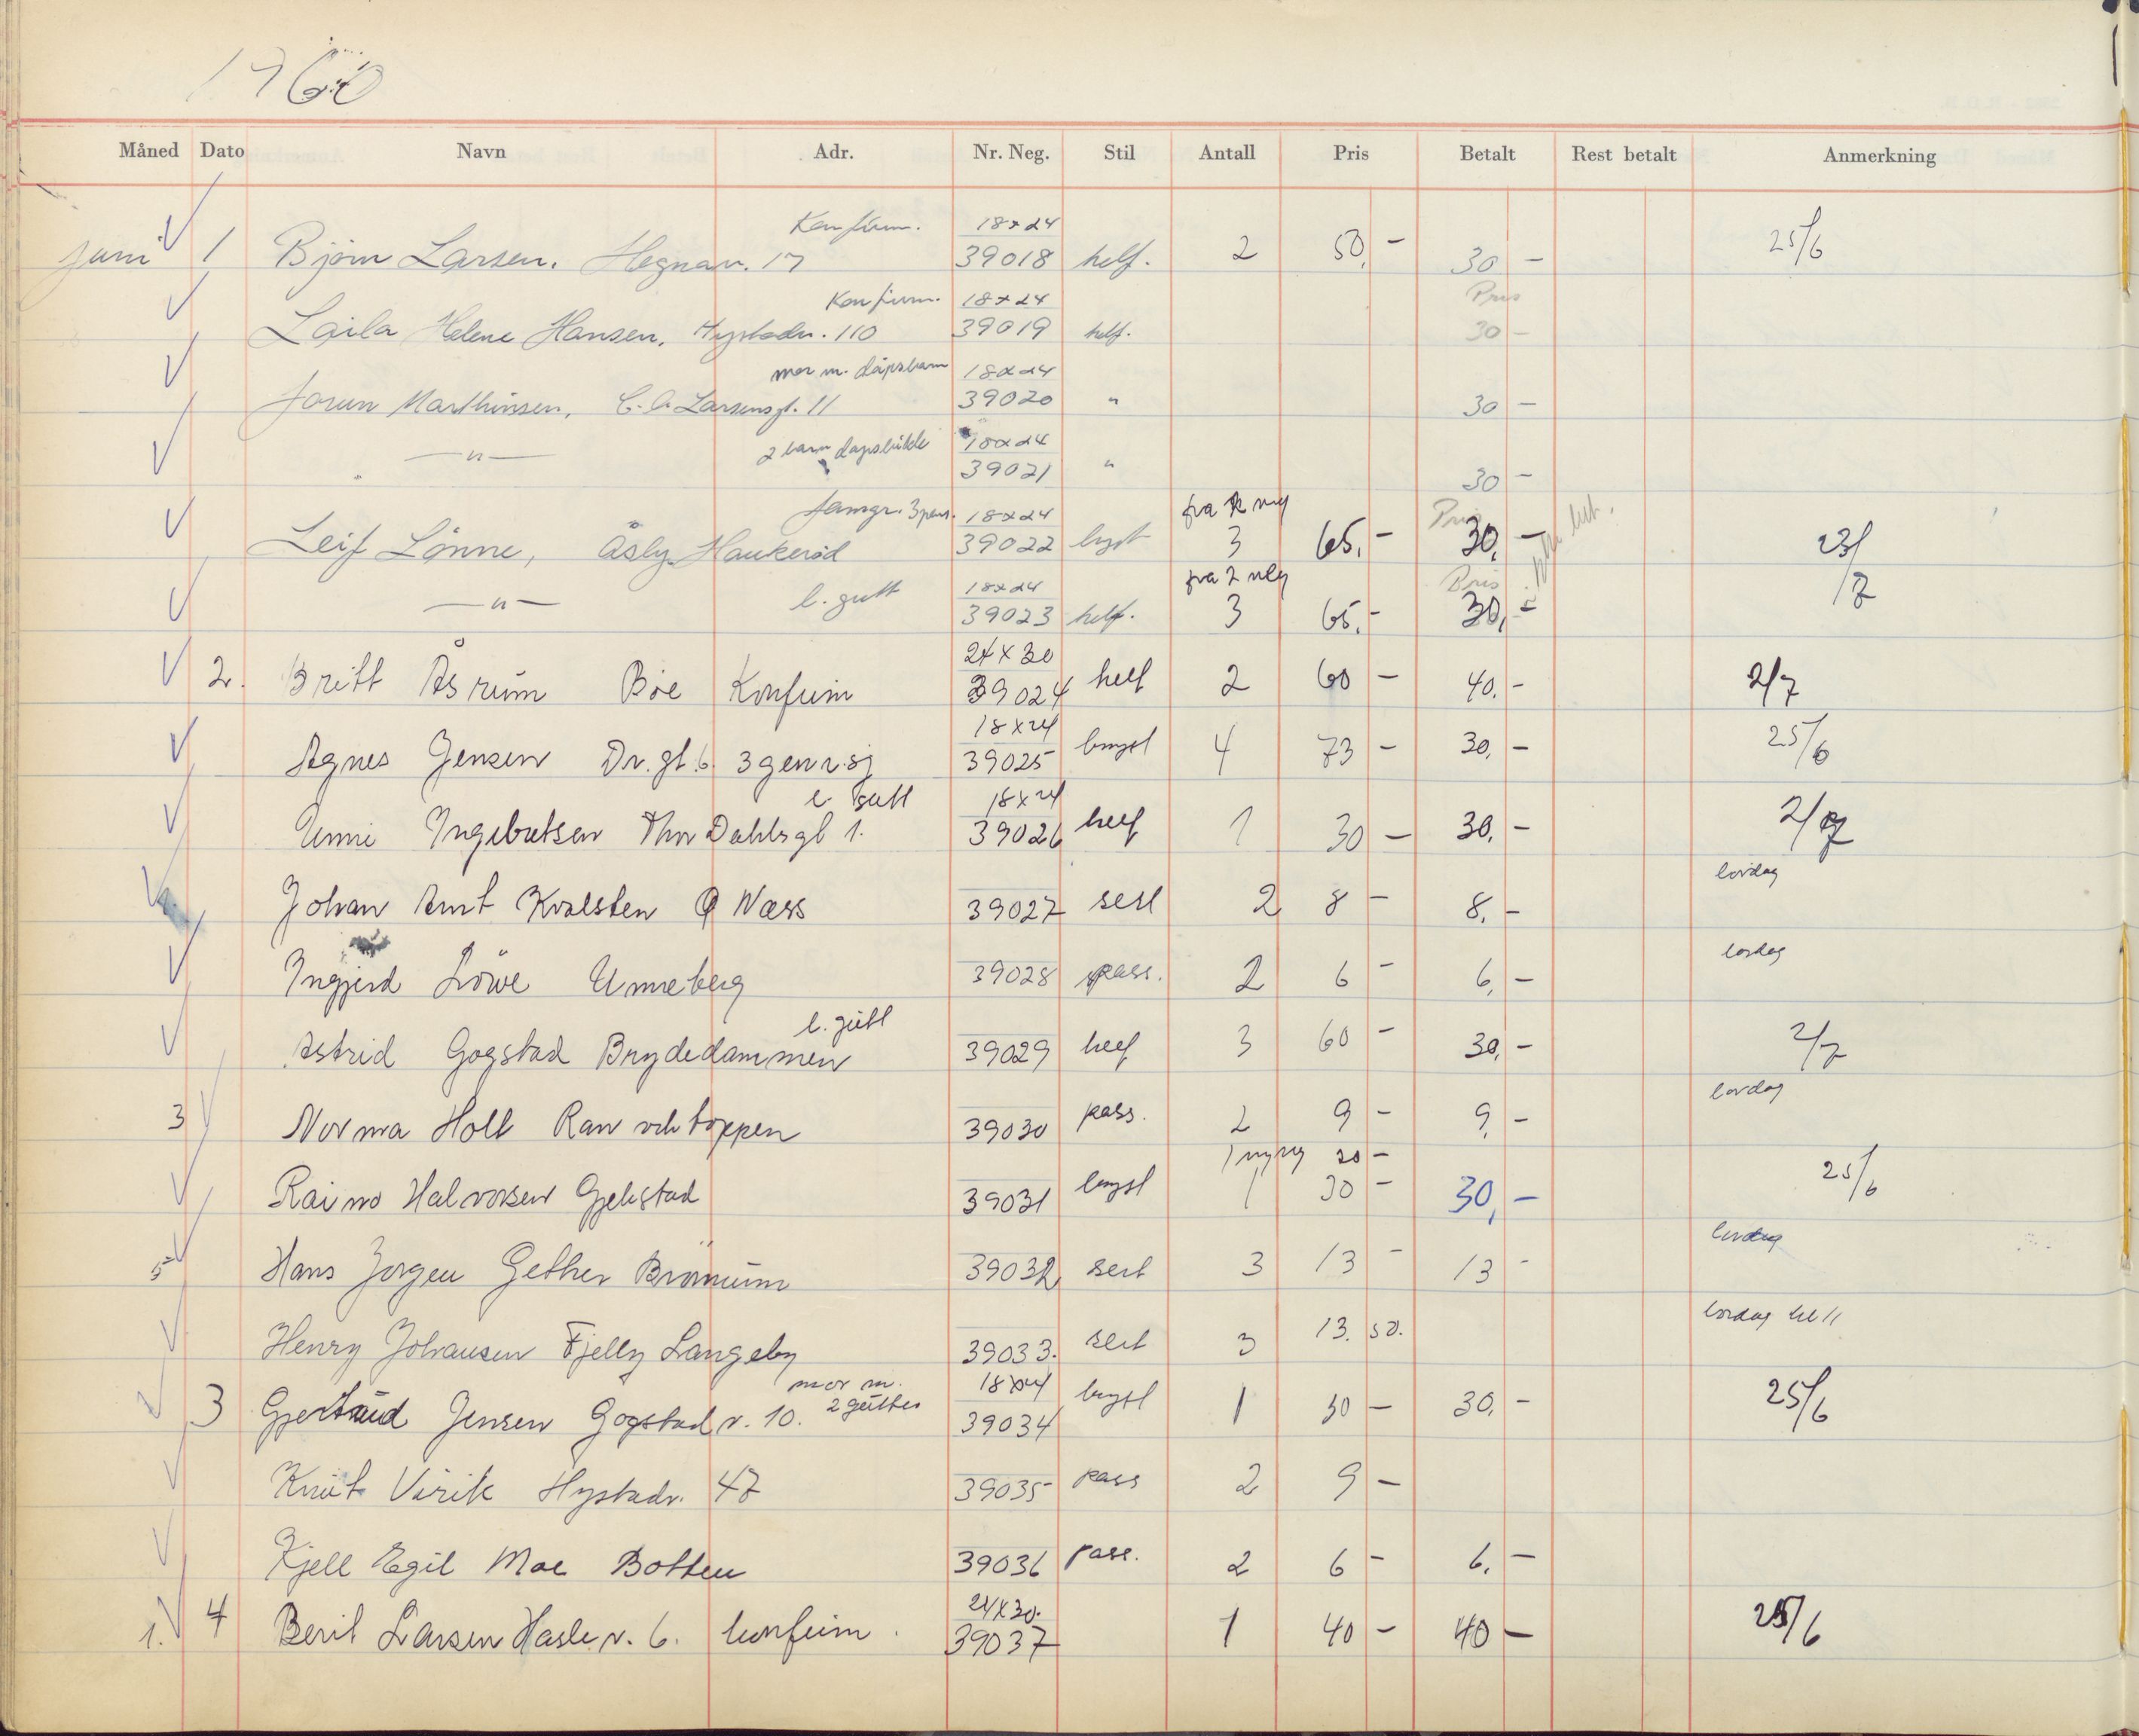 1960
Måned Dato Navn Adr. Nr. Neg. Stil Antall Pris Betalt Rest betalt Anmerkning
Konfirm. 18x24
juni 1 Bjørn Larsen. Hegnav. 17 39018 helf. 2 50,- 30 - 25/6
Konfirm. 18x24 Pris
Laila Helene Hansen, Hystadv. 110 39019 helf. 30 -
mor m. dåpsbarn 18x24
Jorun Marthinsen, C. A. Larsensgt. 11 39020 " 30 -
2 barn dåpsbilde 18x24
—"— 39021 " 30 -
famgr. 3 pers. 18x24 fra 2 neg Pris
Leif Lønne, Åsly Haukerød 39022 bryst 3 65,- 30,- 23/7
l. gutt 18x24 fra 2 neg Pris
—"— 39023 helf. 3 65,- 30,-
24x30
2. Britt Åsrum Bøe Konfirm 39024 helf 2 60 - 40,- 2/7
18x24
Agnes Jensen Dr. gt. 6. 3 gen r. sj 39025 bryst 4 73 - 30,- 25/6
l. gutt 18x24
Unni Ingebretsen Thor Dahlsgt 1. 39026 helf 1 30 - 30,- 2/7
lørdag
Johan Arnt Kvalsten Ø Næss 39027 sert 2 8 - 8,-
lørdag
Ingjerd Löwe Unneberg 39028 pass. 2 6 - 6,-
l. gutt
Astrid Gogstad Brydedammen 39029 helf 3 60 - 30,- 2/7
lørdag
3 Norma Holt Ranvehtoppen 39030 pass. 2 9 - 9,-
1 20 -
Raimo Halvorsen Gjekstad 39031 bryst 1 30 - 30,- 25/6
lørdag
5 Hans Jørgen Gether Bromum 39032 sert 3 13 - 13 -
lørdag kl 11
Henry Johansen Fjelly Langeby 39033. sert 3 13. 50.
mor m. 2 gutter 18x24
3 Gjertrud Jensen Gogstadv. 10. 39034 bryst 1 30 - 30,- 25/6
Knut Virik Hystadv. 47 39035 pass 2 9 -
Kjell Egil Moe Botten 39036 pass. 2 6 - 6,-
24x30.
1. 4 Berit Larsen Haslev. 6. konfirm. 39037 1 40 - 40 - 25/6